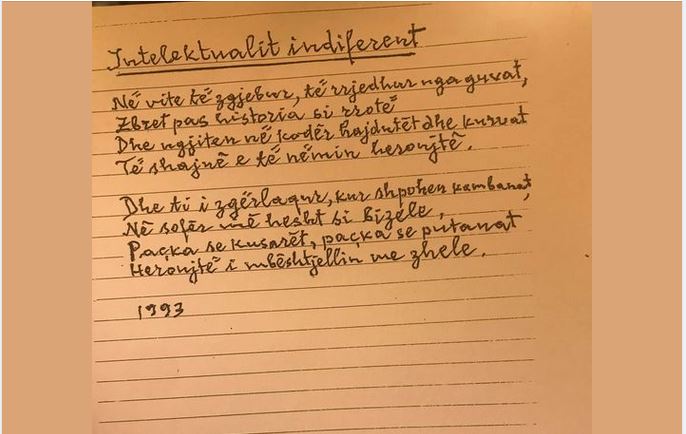 Intelektualit indiferent
Në vite të zgjebur, të rrjedhur nga guvat,
Zbret pas historia si rrotë
Dhe ngjiten në kodër hajdutët dhe kurvat
Të shajnë e të nëmin heronjtë.
Dhe ti i zgërlaqur, kur shpohen kambanat,
Në sofër më hesht si bizele,
Paçka se kusarët, paçka se putanat
Heronjtë i mbështjellin me zhele.
1993